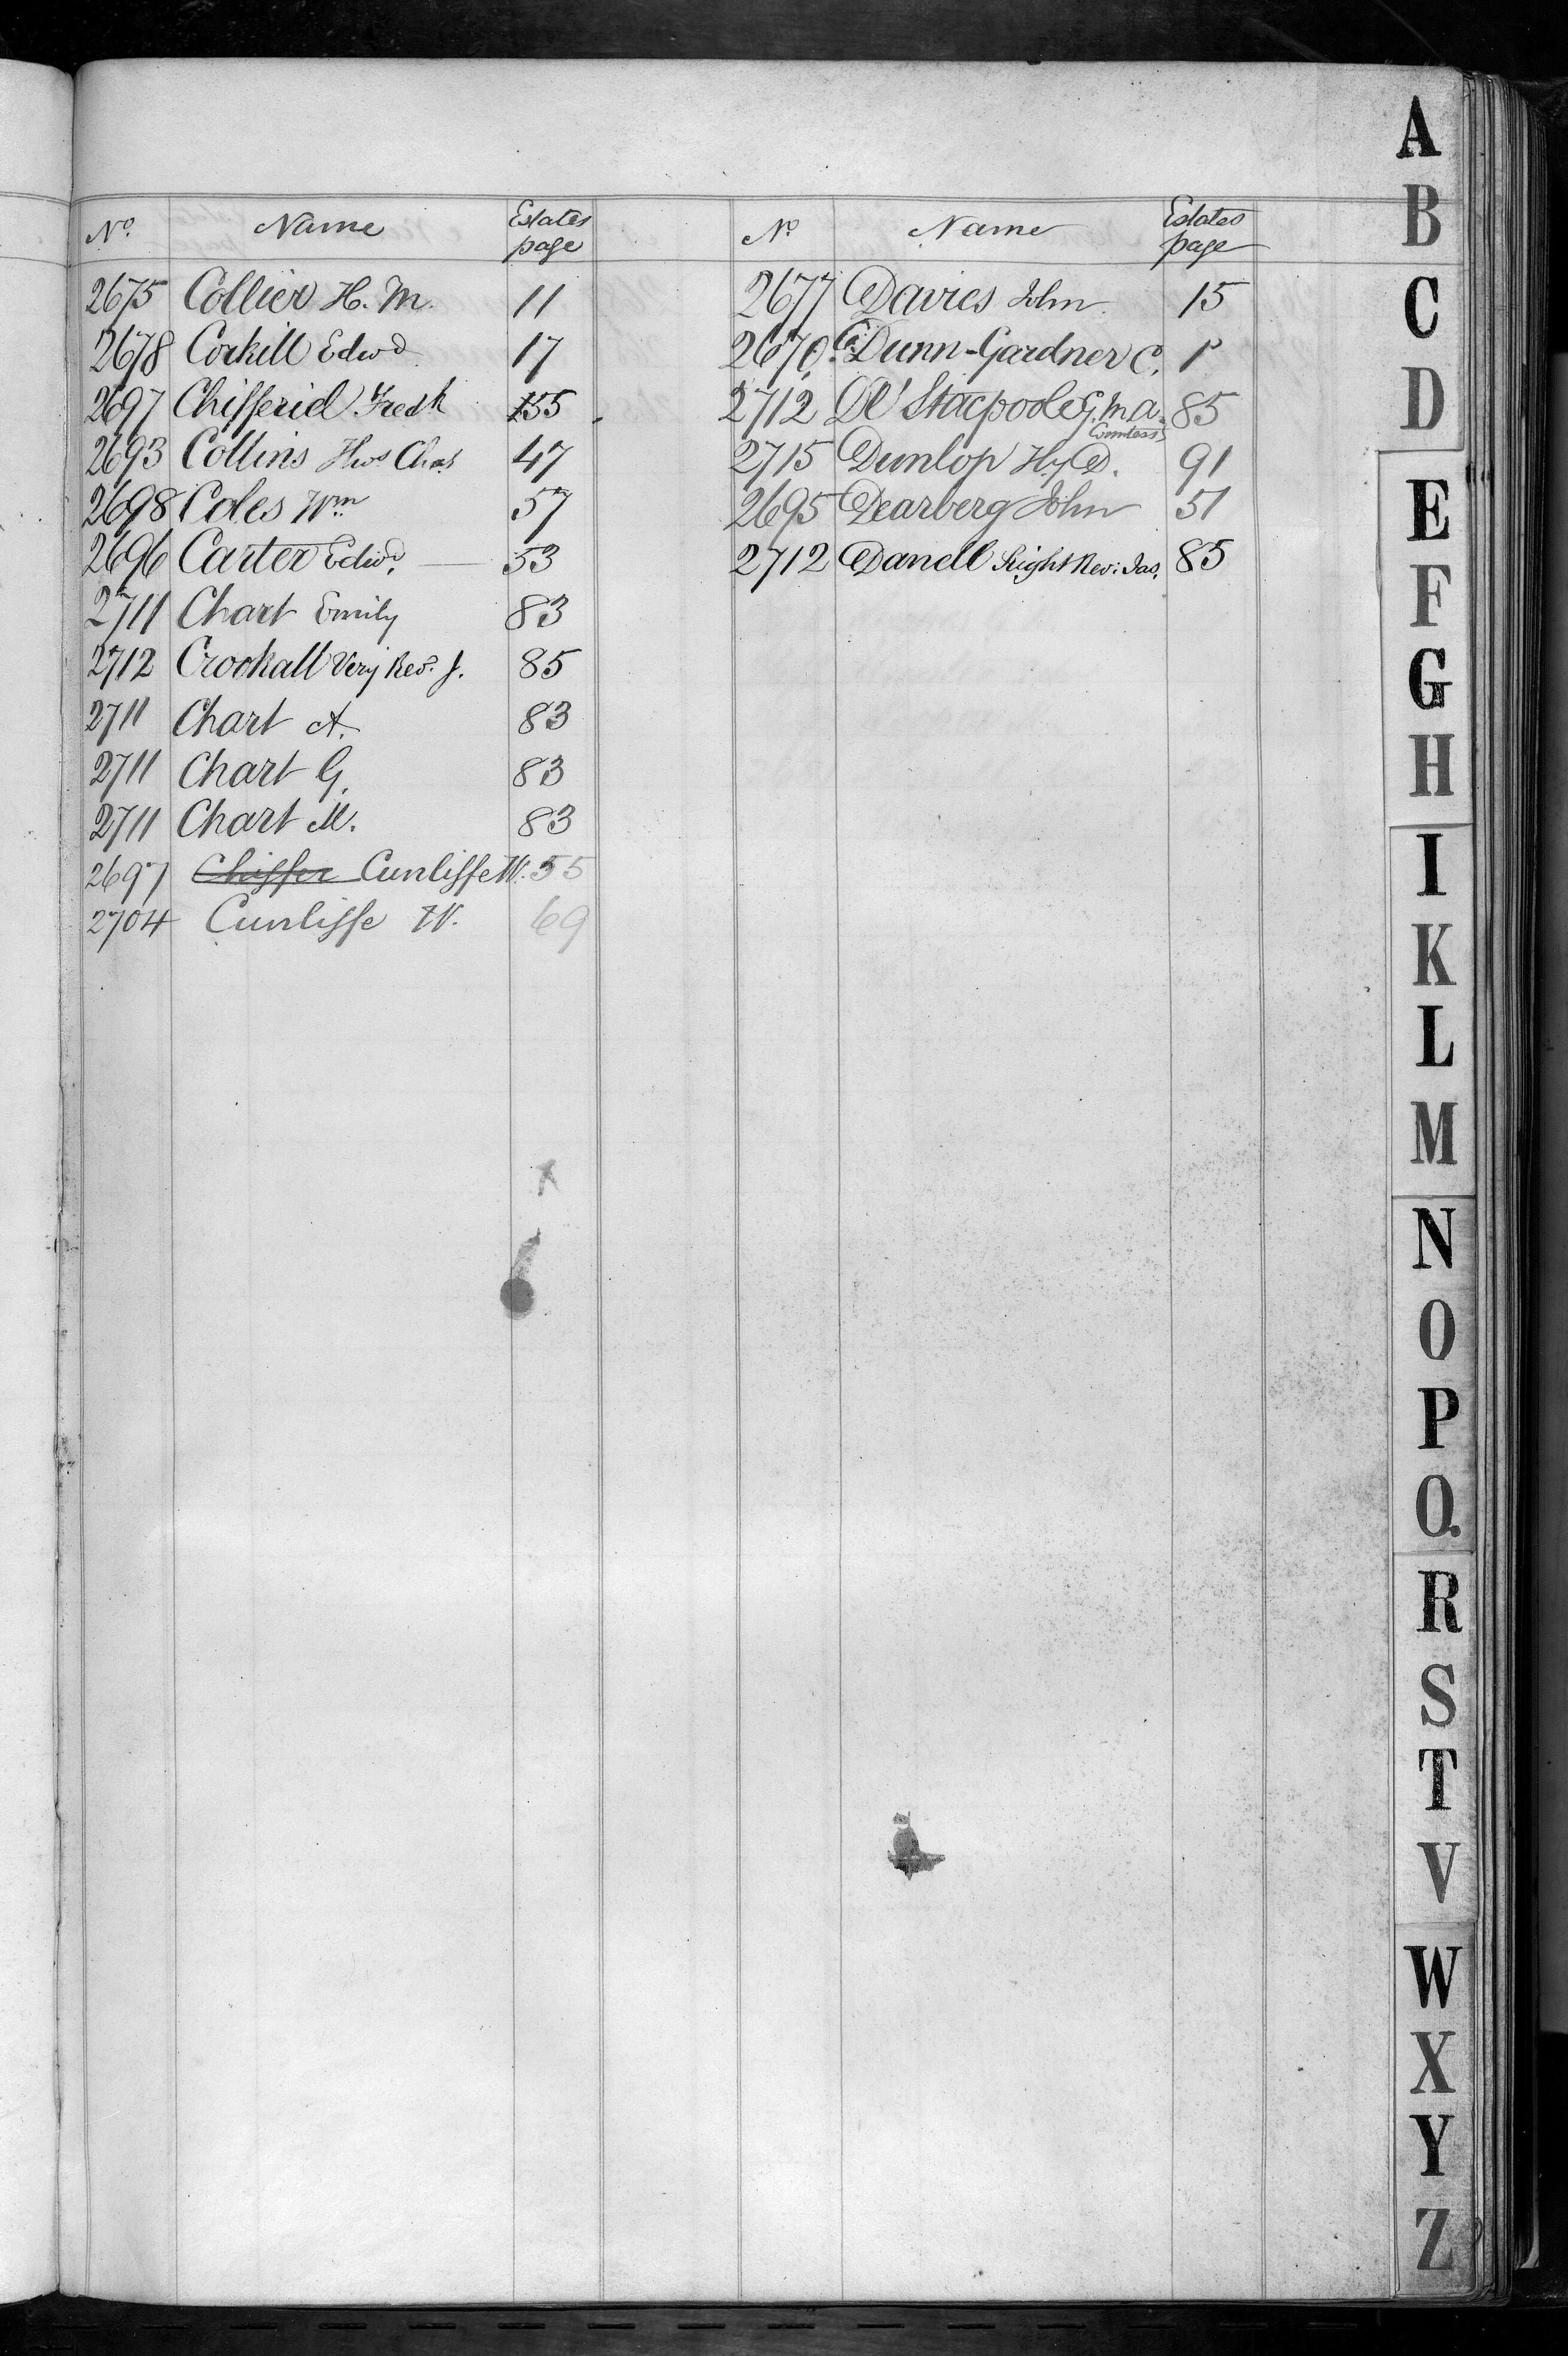 No. Name Estates page
2675 Collier H. M. 11
2678 Corkill Edwd 17
2697 Chifferiel Fredk 55
2693 Collins Hws Chas 47
2698 Coles Wm 57
2696 Carter Edwd. — 53
2711 Chart Emily 83
2712 Crookall Very Revd. J. 85
2711 Chart A. 83
2711 Chart G. 83
2711 Chart M. 83
2697 Chiffer Cunliffe W. 55
2704 Cunliffe W. 69
No. Name Estates page
2677 Davies John 15
2670 Dunn-Gardner C. 1
2712 De Stacpoole G. M. A. 85
Comtess
2715 Dunlop Hy D. 91
2695 Dearberg John 51
2712 Danell Right Rev: Jas. 85
A
B
C
D
E
F
G
H
I
K
L
M
N
O
P
Q.
R
S
T
V
W
X
Y
Z